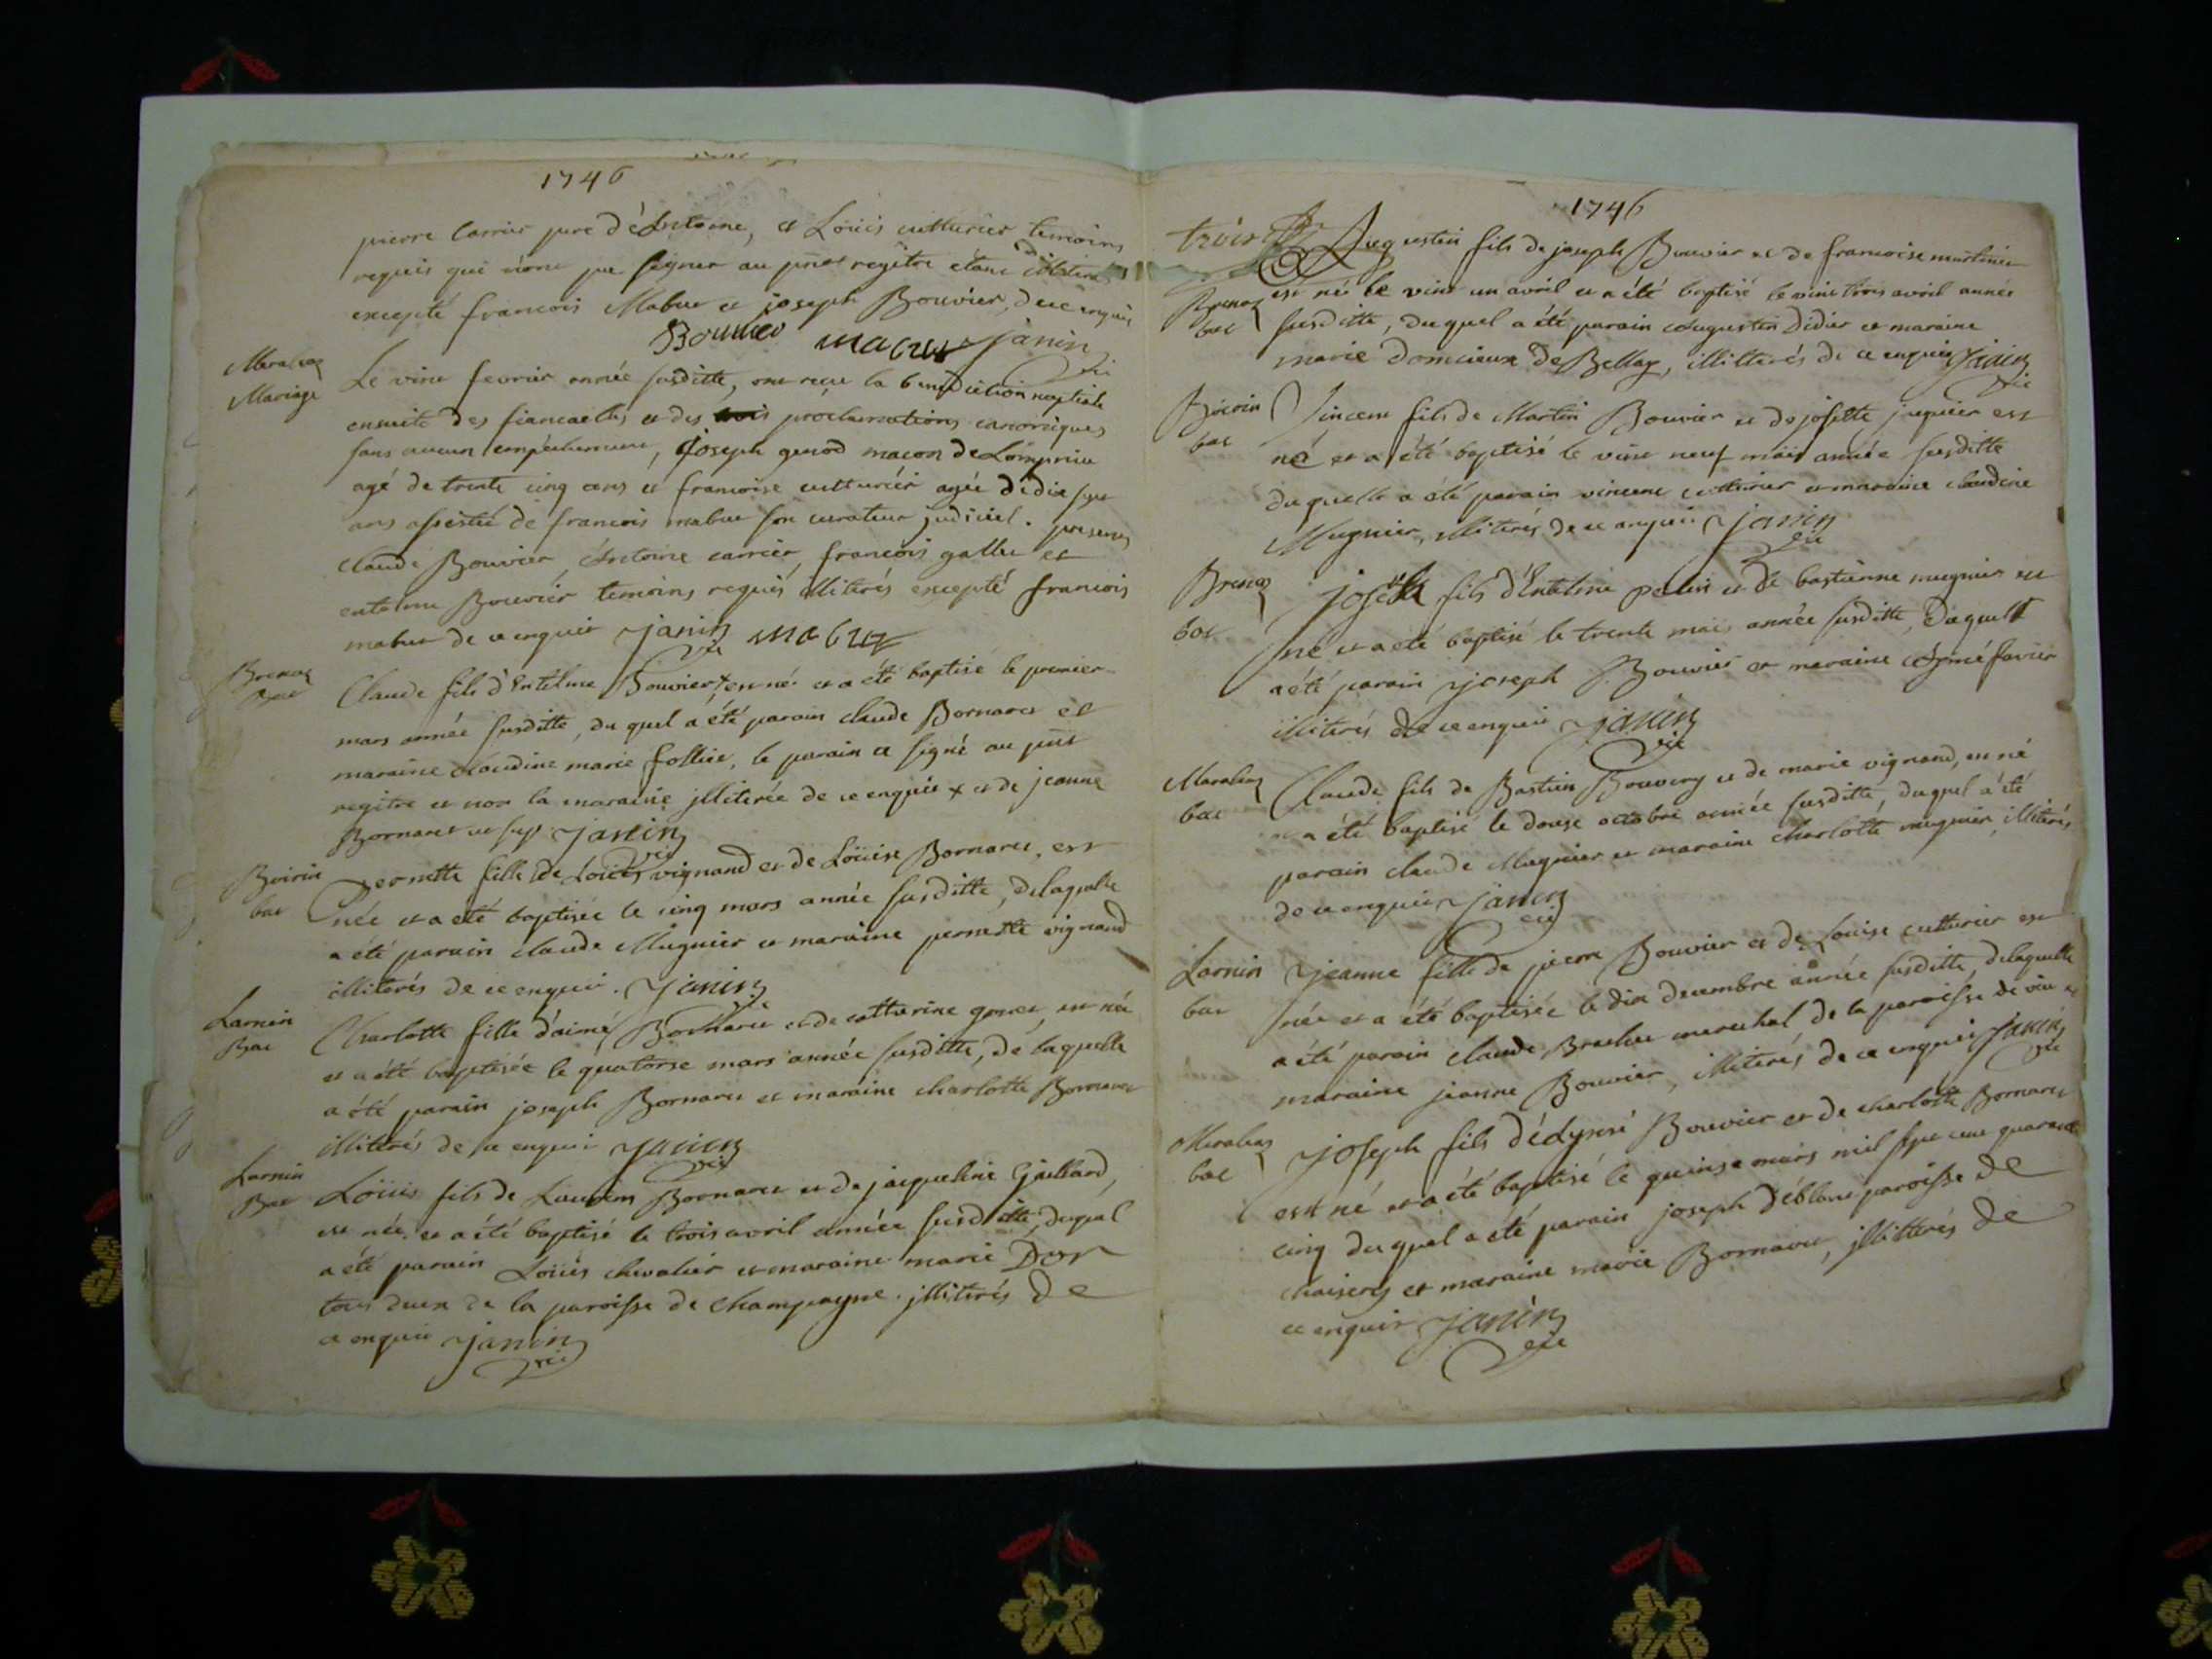 1746
pierre Carrier pere d'éAntoine, et Loüis cutturier temoins
requis qui n'ont pu signer au pñt regître étans illiterés
excepté francois Mabu et joseph Bouvier, de ce enquis
Bouvier mabu janin
vic
Mariage
Le vint fevrier année susditte, ont reçu la benediction nuptiale
ensuite des fiancailles et des trois proclamations canoniques
sans aucun empéchement, joseph genod macon de Lompnieu
agé de trente cinq ans et francoise cutturier agée dédix sept
ans assistée de francois mabu son curateur judiciel. presens
claude Bouvier, Antoine carrier, francois gallu et
entelme Bouvier temoins requis illiterés excepté francois
mabu de ce enquis janin mabu
vic
Brenaz
Bat
Claude fils d'Entelme Bouvier x est né et a été baptisé le premier
mars année susditte, du quel a été parain claude Bornaret et
maraine claudine marie follier, le parain a signé au pñt
regitre et non la maraine jlliterée de ce enquis x et de jeanne
Bornaret janin
vic
Boirin
bat
Pernette fille de Loüis vignand et de Loüise Bornaret, est
née et a été baptisée le cinq mars année susditte, delaquelle
a été parain claude Mugnier et maraine pernette vignand
illiterés de ce enquis. janin
vic
Larnin
Bat
Charlotte fille d'aimé Bornaret et de catterine et née
et a été baptisée le quatorse mars année susditte, dé laquelle
a été parain joseph Bornaret et maraine charlotte Bornaret
illiterés de ce enquis janin
vic
Larnin
Bat
Loüis fils de Laurent Bornaret et de jacqueline Gaillard,
est née et a été baptisé le trois avril année susditte, duquel
a été parain Loüis chevalier et maraine marie Dor
tous deux de la paroisse de champagne. jlliterés de
ce enquis janin
vic
1746
trois
Augustin fils de joseph Bouvier et de francoise martinier
Brenaz
bat
est né le vint un avril et a été baptisé le vint trois avril année
susditte, duquel a été parain Augustin Didier et maraine
marie domcieux de Bellay, illitterés de ce enquis janin
vic
Boirin
bat
Vincent fils de Martin Bouvier et de josette juguier est
né et a été baptisé le vint neuf mais année susditte
duquelle a été parain vincent cutturier et maraine claudine
Mugnier, illiterés de ce enquis janin
vic
Brenaz
bat
joseph fils d'Entelme perlin et de bastienne mugnier est
né et a été baptisé le trente mais année susditte, duquelt
a été parain joseph Bouvier et maraine Aymé favier
illiterés de ce enquis janin
vic
bat
Claude fils de Bastien Bouvery et de marie vignand, est né
et a été baptisé le douse octobre année susditte, duquel a été
parain claude Mugnier et maraine charlotte mugnier, illiterés
de ce enquis janin
vic
Larnin
bat
jeanne fille de pierre Bouvier et de Loüise cutturier est
née et a été baptisée le dix decembre année susditte, delaquelle
a été parain claude Brachet marechal, de la paroisse de vieu et
maraine jeanne Bouvier, illiterés de ce enquis janin
vic
bat
joseph fils Bouvier et de charlotte Bornaret
est né et a été baptisé le quinse mars mil sept cent quarante
cinq duquel a été parain joseph déblanc paroisse de
et maraine marie Bornaret, jllitterés de
ce enquis janin
vic